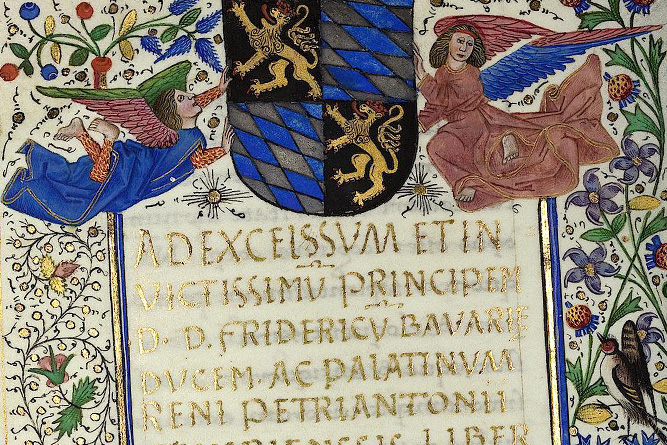 AD EXCELSSVM ET IN
VICTISSIMŪ PRINCIPEM
D. D. FRIDERICŪ BAVARIE
DVCEM. AC PALATINVM
RENI PETRI ANTONII
LIBER